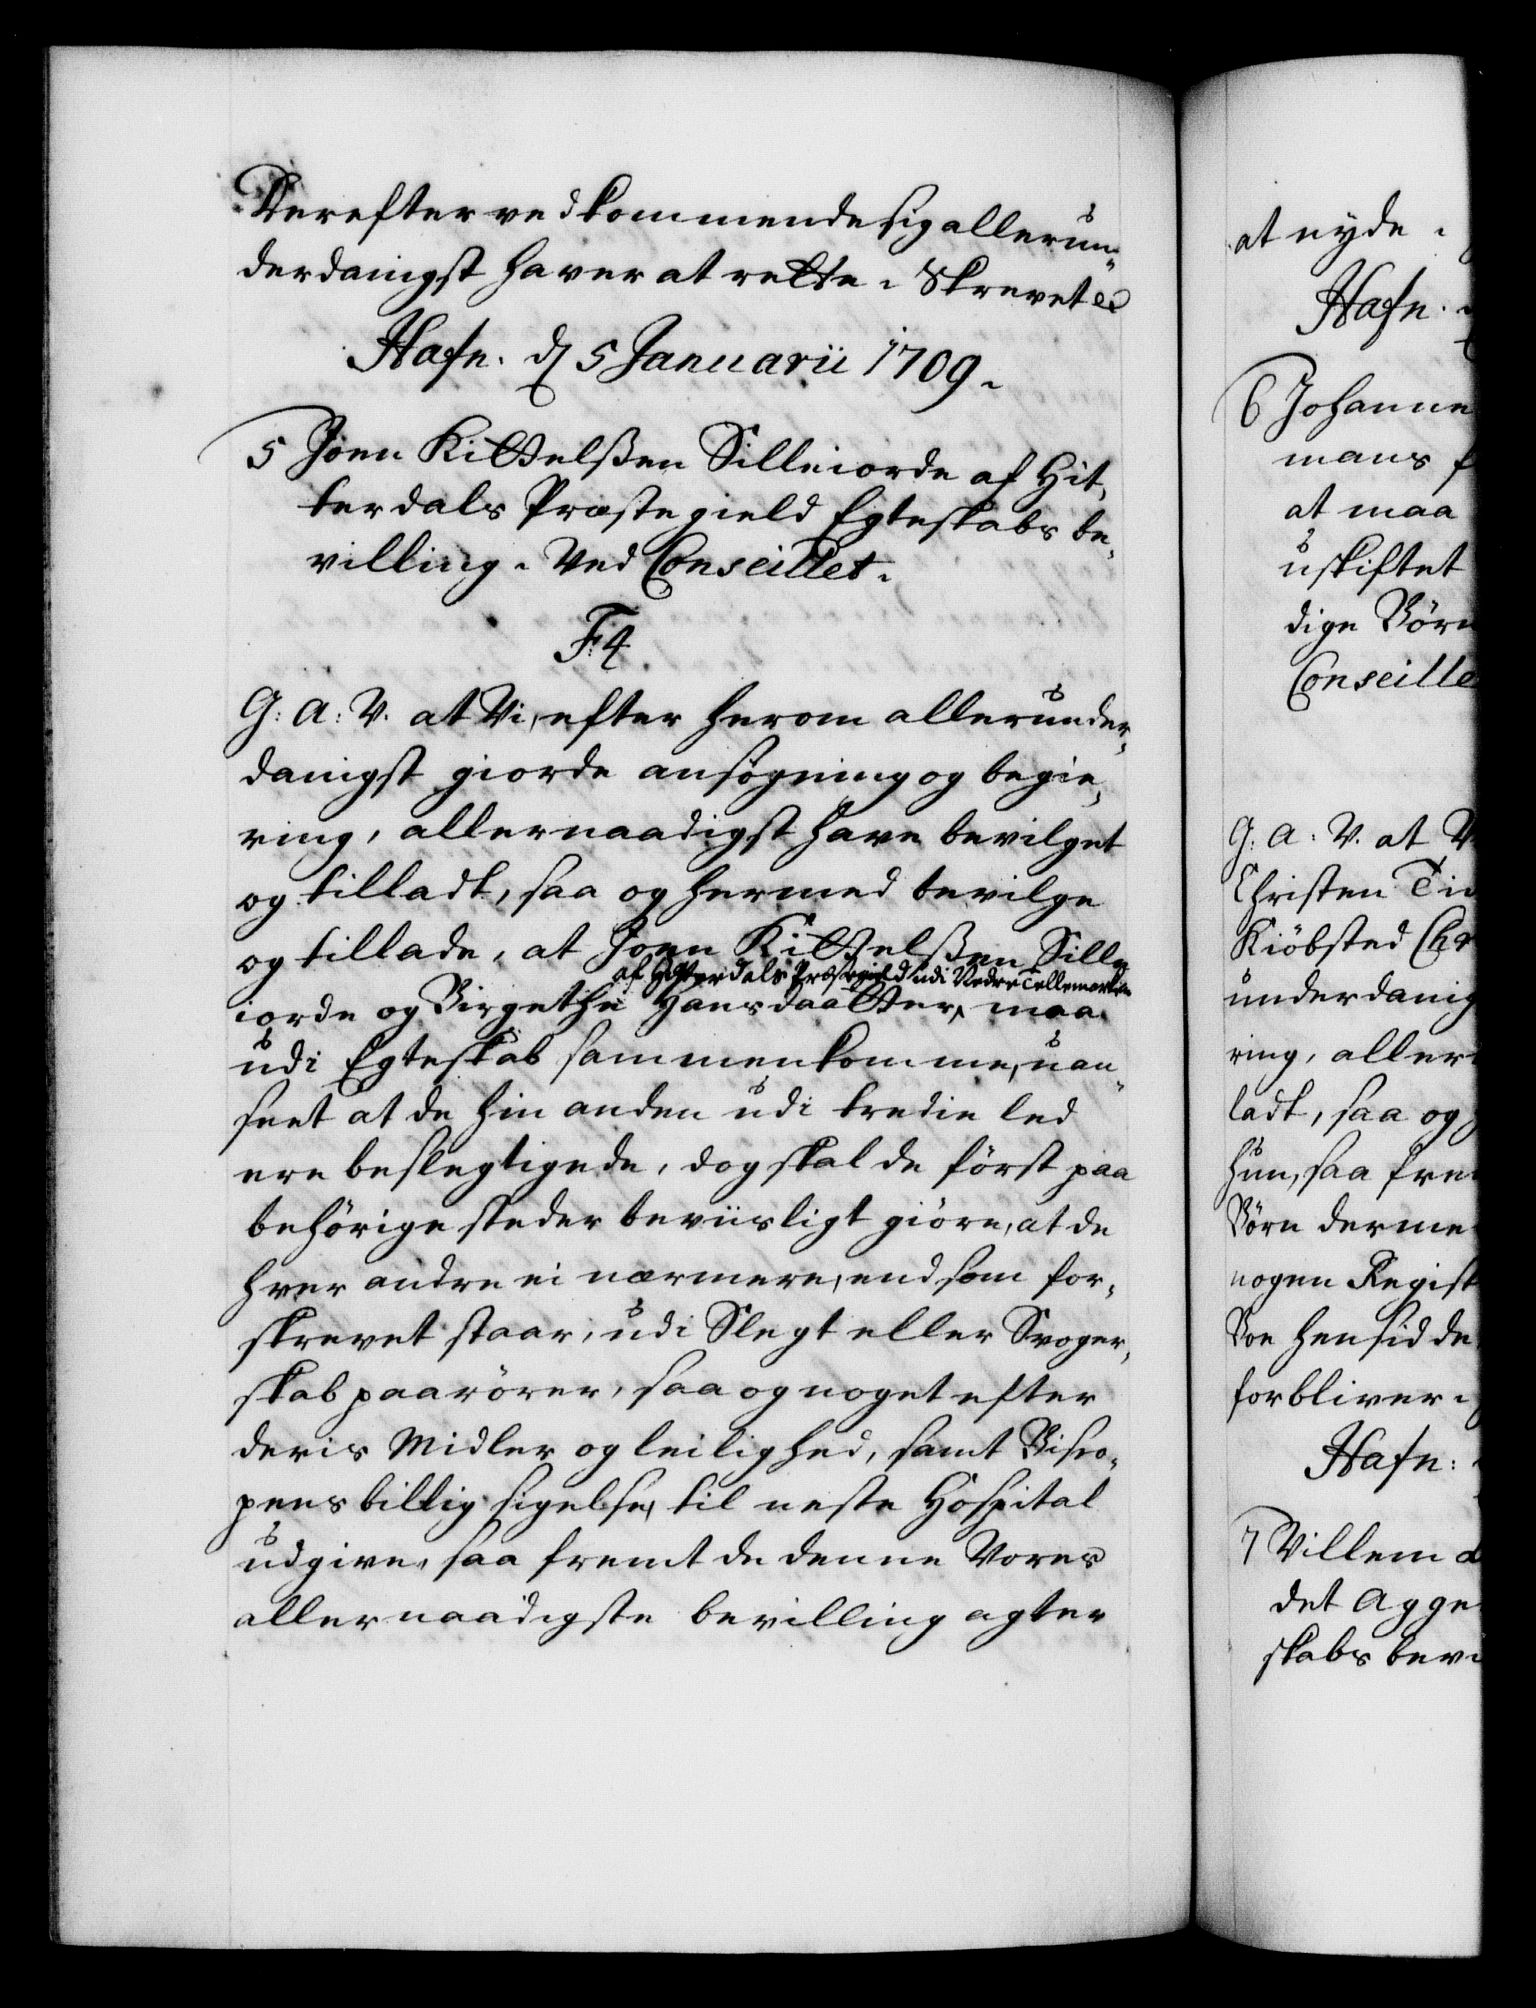 Derefter vedkommende sig allerun„
derdanigst haver at rette. Skrevet etc
Hafn. d 5 Januarii 1709.
5 Joen Kittelsßen Silleiorde af Hit„
terdals Præstegield Egteskabs be„
villing. Ved Conseillet.
F. 4.
G: A: V. at Vi, efter herom allerunder„
danigst giorde ansøgning og begie„
ring, allernaadigst have bevilget
og tilladt, saa og hermed bevilge
og tillade, at Joen Kittelsßen Sille
af Hitterdals Præstegield udi Nedre Tellemarken
iorde og Birgethe Hansdaatter, maa
udi Egteskab sammenkomme, uan„
seet at de hin anden udi tredie led
ere beslegtigede, dog skal de først paa
behørige steder beviisligt giøre, at de
hver andre ei nærmere, end som for„
skrevet staar, udi Slegt eller Svoger„
skab paarører, saa og noget efter
deris Midler og leilighed, samt Bisco„
pens billig sigelse, til neste Hospital
udgive, saa fremt de denne Vores
allernaadigste bevilling agter
at nyde.
Hafn.
6 Johanne
mans
at maa
uskiftet
dige Børn
Conseille
G: A: V. at V
Christen
Kiøbsted
underdanig
ring, aller
ladt, saa og
hun, saa
Børn derme
nogen Regist
Boe hensidde
forbliver.
Hafn:
7 Villem
det Agge
skabs bevi